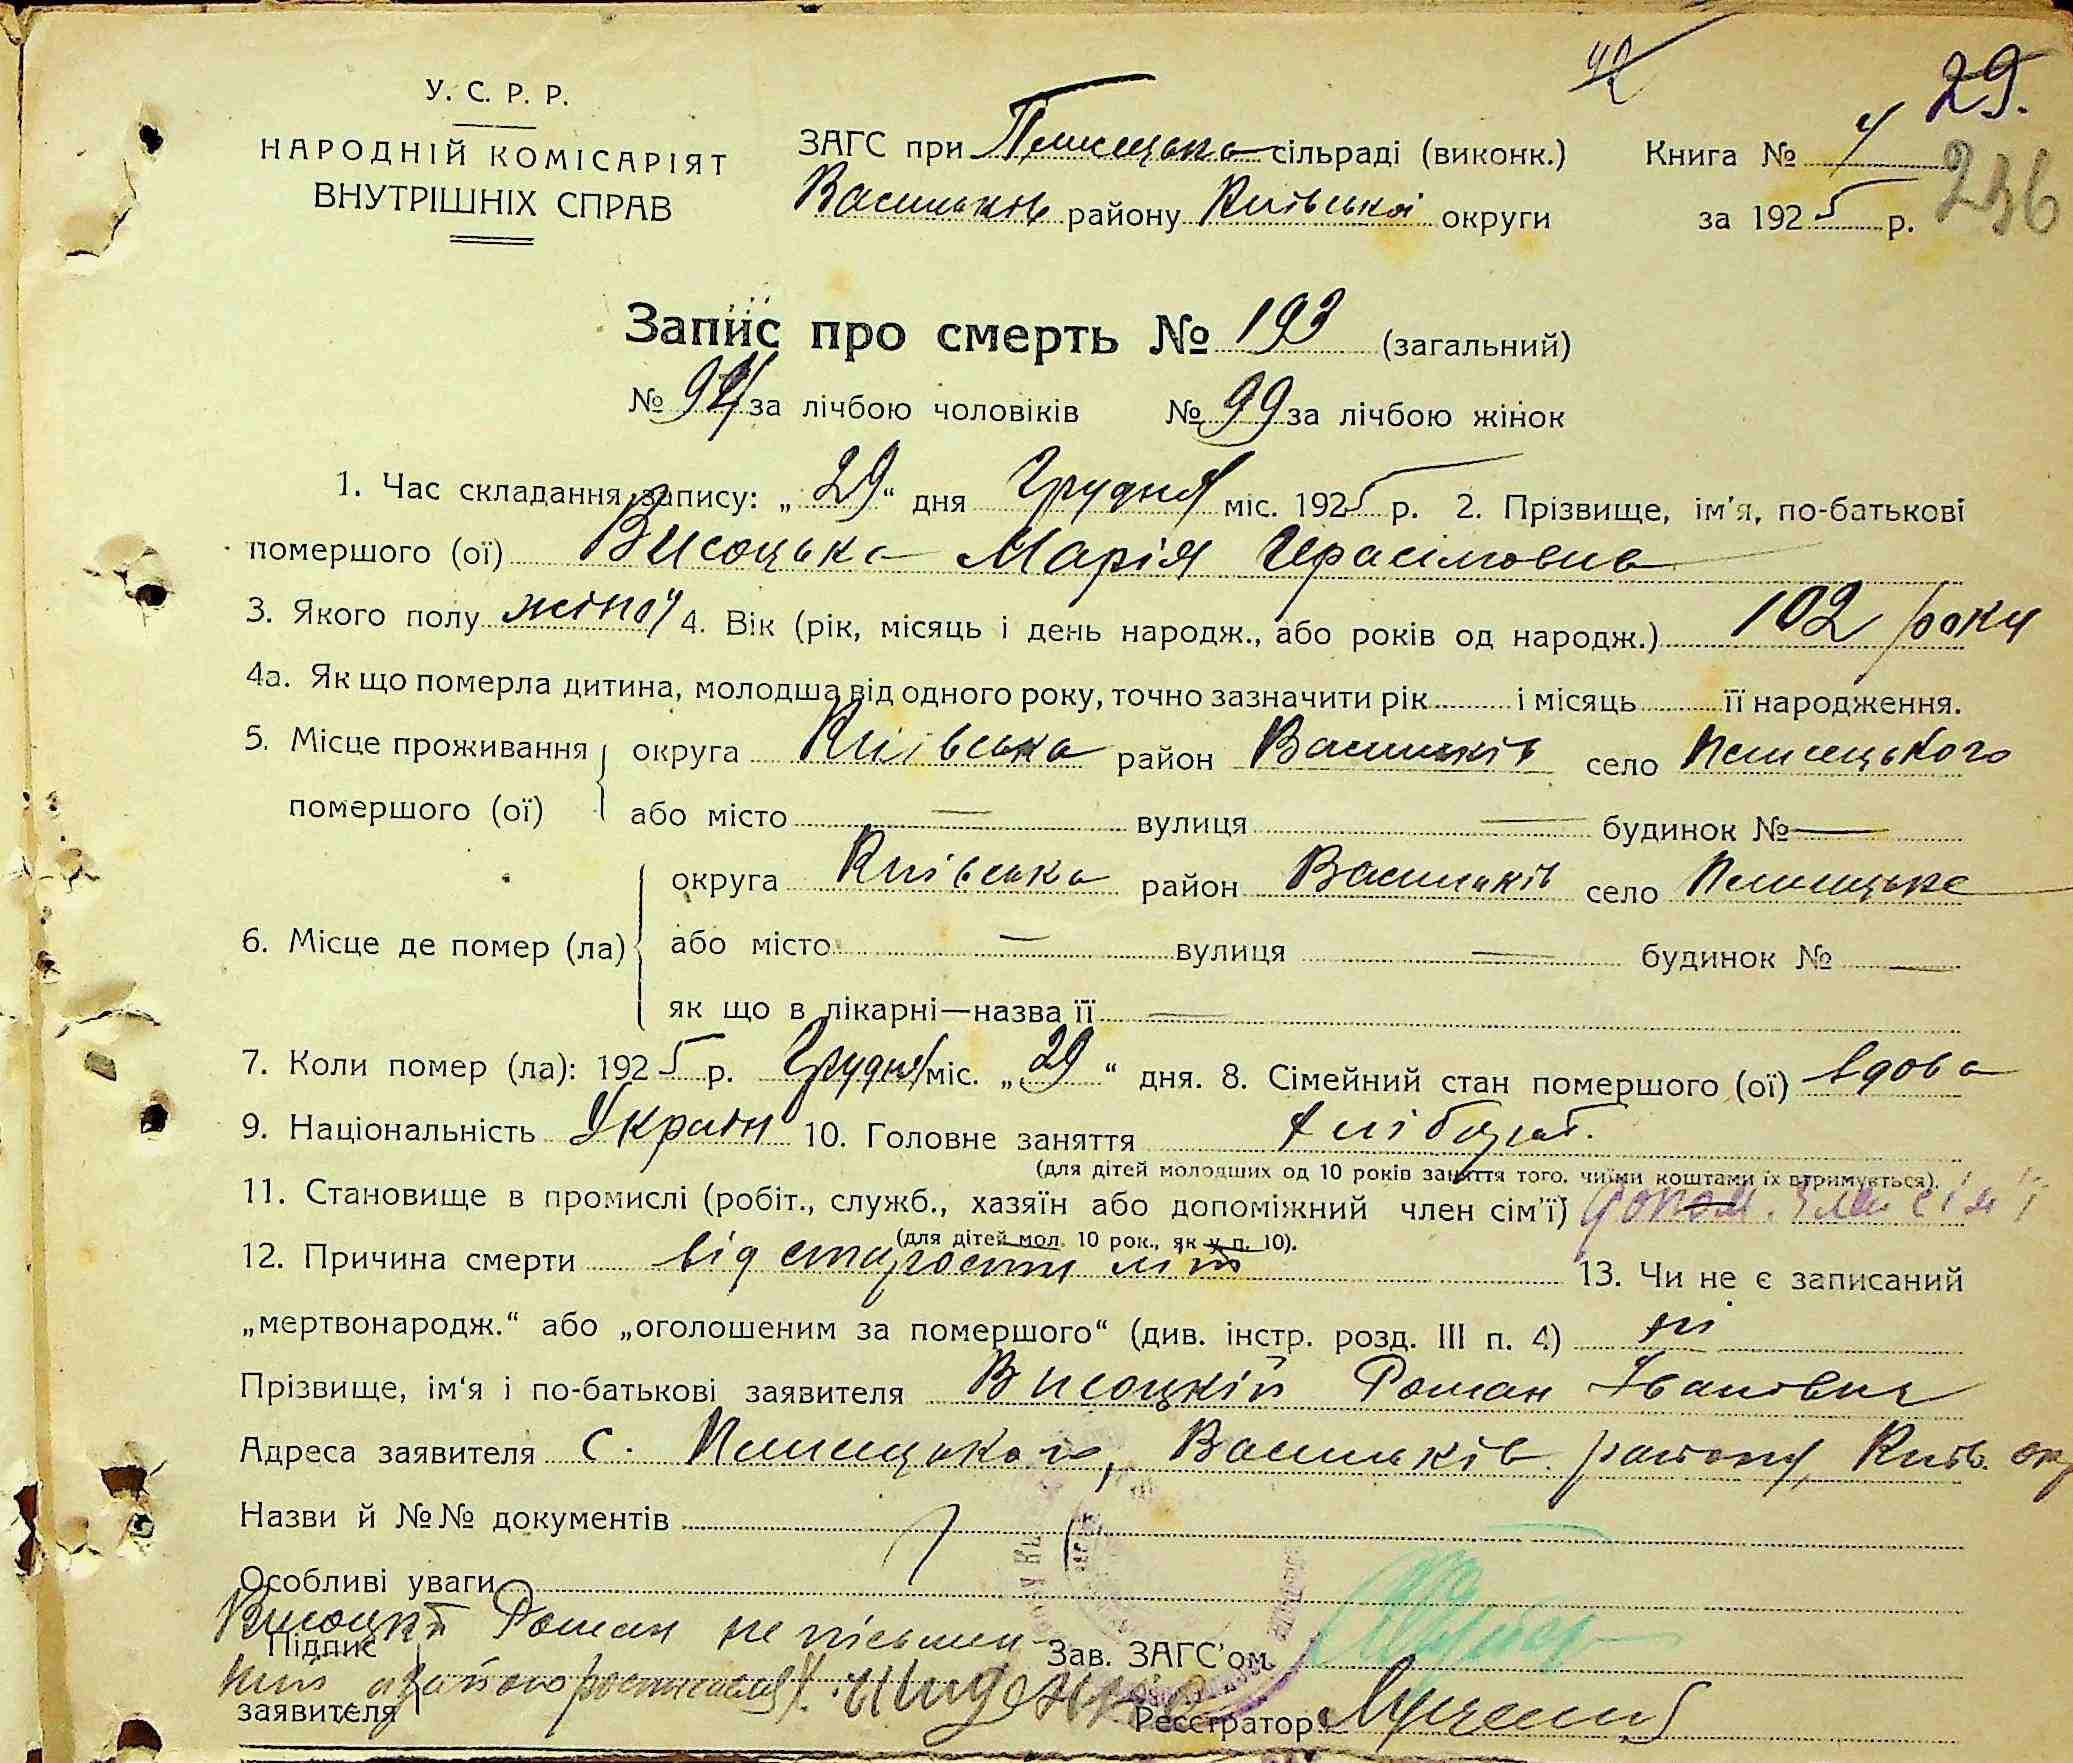 42
29.
У. С. Р. Р.
НАРОДНІЙ КОМІСАРІЯТ
ВНУТРІШНІХ СПРАВ
ЗАГС при сільраді (виконк.) Книга № 4
236
Васильків району Київської округи за 1925 р.
Запис про смерть № 193 (загальний)
№ 94 за лічбою чоловіків № 99 за лічбою жінок
1. Час складання запису: „29“ дня Грудня міс. 1925 р. 2. Прізвище, ім'я, по-батькові
помершого (ої) Висоцька Марія Герасімовна
3. Якого полу жіноч 4. Вік (рік, місяць і день народж., або років од народж.) 102 роки
4а. Як що померла дитина, молодша від одного року, точно зазначити рік і місяць її народження.
5. Місце проживання помершого (ої) округа Київська район Васильків село
або місто — вулиця — будинок № —
6. Місце де помер (ла) округа Київська район Васильків село
або місто — вулиця — будинок № —
як що в лікарні—назва її —
7. Коли помер (ла): 1925 р. Грудня міс. „29“ дня. 8. Сімейний стан помершого (ої) вдова
9. Національність Україн 10. Головне заняття хлібороб.
(для дітей молодших од 10 років заняття того, чиїми коштами їх втримується).
11. Становище в промислі (робіт., служб., хазяїн або допоміжний член сім'ї) допом. член сім'ї
(для дітей мол. 10 рок., як у п. 10).
12. Причина смерти від старости літ 13. Чи не є записаний
„мертвонародж.“ або „оголошеним за помершого“ (див. інстр. розд. III п. 4) ні
Прізвище, ім'я і по-батькові заявителя Висоцкій Роман Іванович
Адреса заявителя с. Васильків. району Київ. окр
Назви й №№ документів
Особливі уваги
Висоцкій Роман не письмен
Підпис заявителя
Зав. ЗАГС'ом
Реєстратор